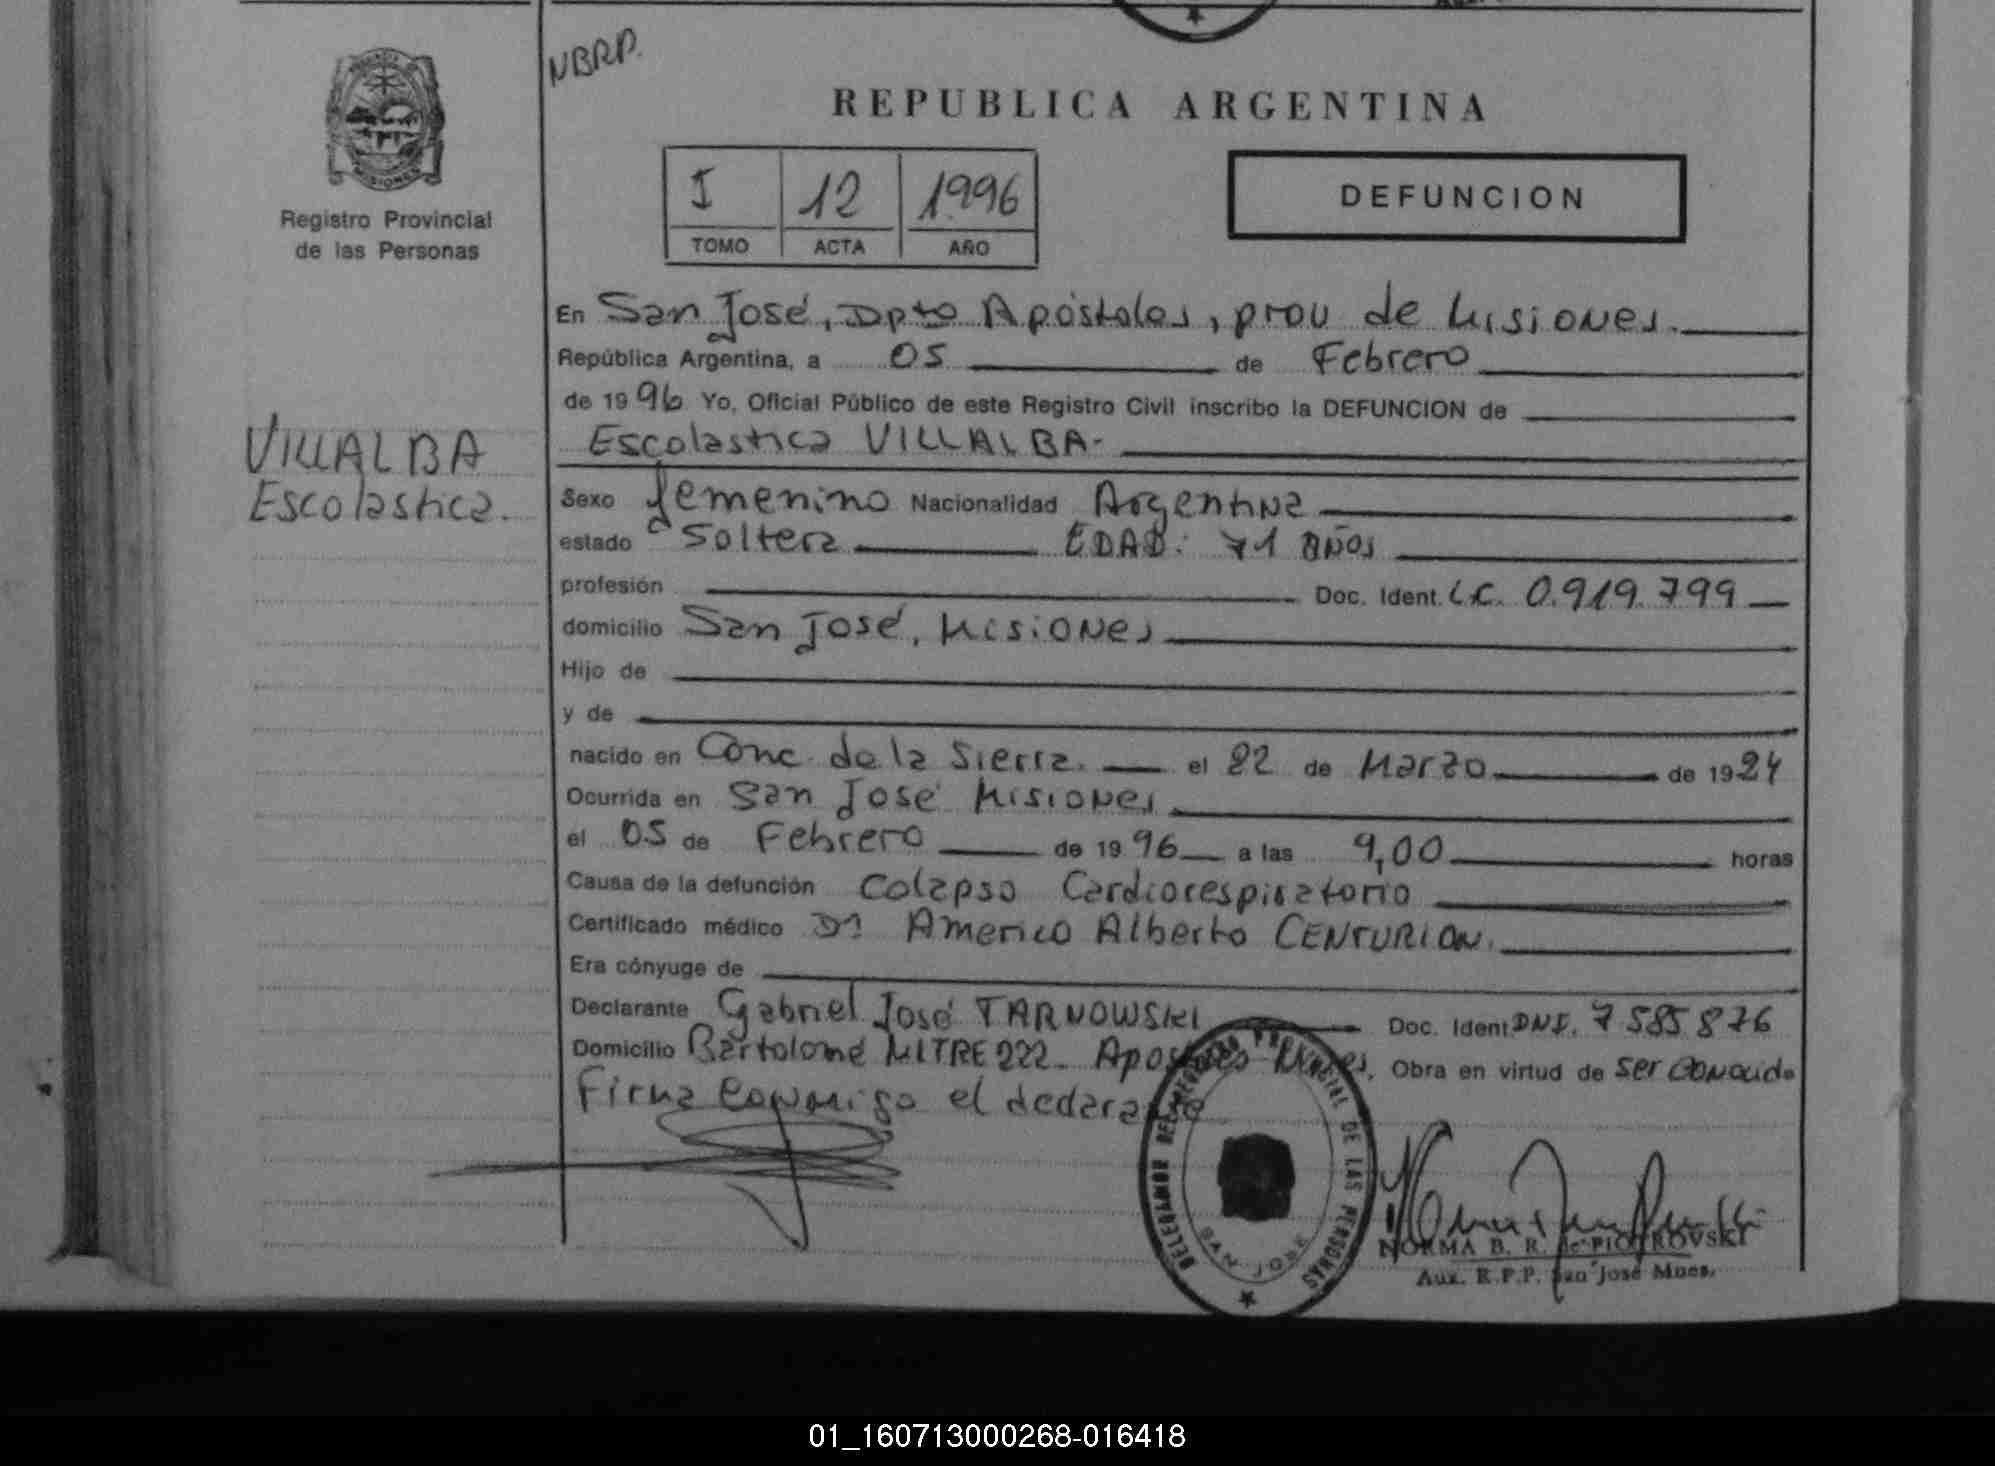 NBRP.
REPUBLICA ARGENTINA
MISIONES
Registro Provincial
de las Personas
I 12 1996
TOMO ACTA AÑO
DEFUNCION
En San José, Dpto Apóstoles, prov de Misiones.
República Argentina, a 05 de Febrero
de 1996 Yo, Oficial Público de este Registro Civil inscribo la DEFUNCION de
Escolastica VILLALBA-
VILLALBA
Escolastica.
Sexo femenino Nacionalidad Argentina
estado Soltera EDAD: 71 AÑOS
profesión Doc. Ident. L.C. 0.919.799
domicilio San José, Misiones
Hijo de
y de
nacido en Conc. de la Sierra. el 22 de Marzo de 1924
Ocurrida en San José Misiones
el 05 de Febrero de 1996 a las 9,00 horas
Causa de la defunción Colapso Cardiorespiratorio
Certificado médico Dr Americo Alberto CENTURION.
Era cónyuge de
Declarante Gabriel José TARNOWSKI Doc. Ident DNI. 7585876
Domicilio Bartolomé MITRE 222- Apostoles Mnes, Obra en virtud de ser conocido
Firma conmigo el declarante
DELEGACION DEL REGISTRO PROVINCIAL DE LAS PERSONAS
SAN JOSE
NORMA B. R. de PIOTROVSKI
Aux. R.P.P. San José Mnes.
01_160713000268-016418